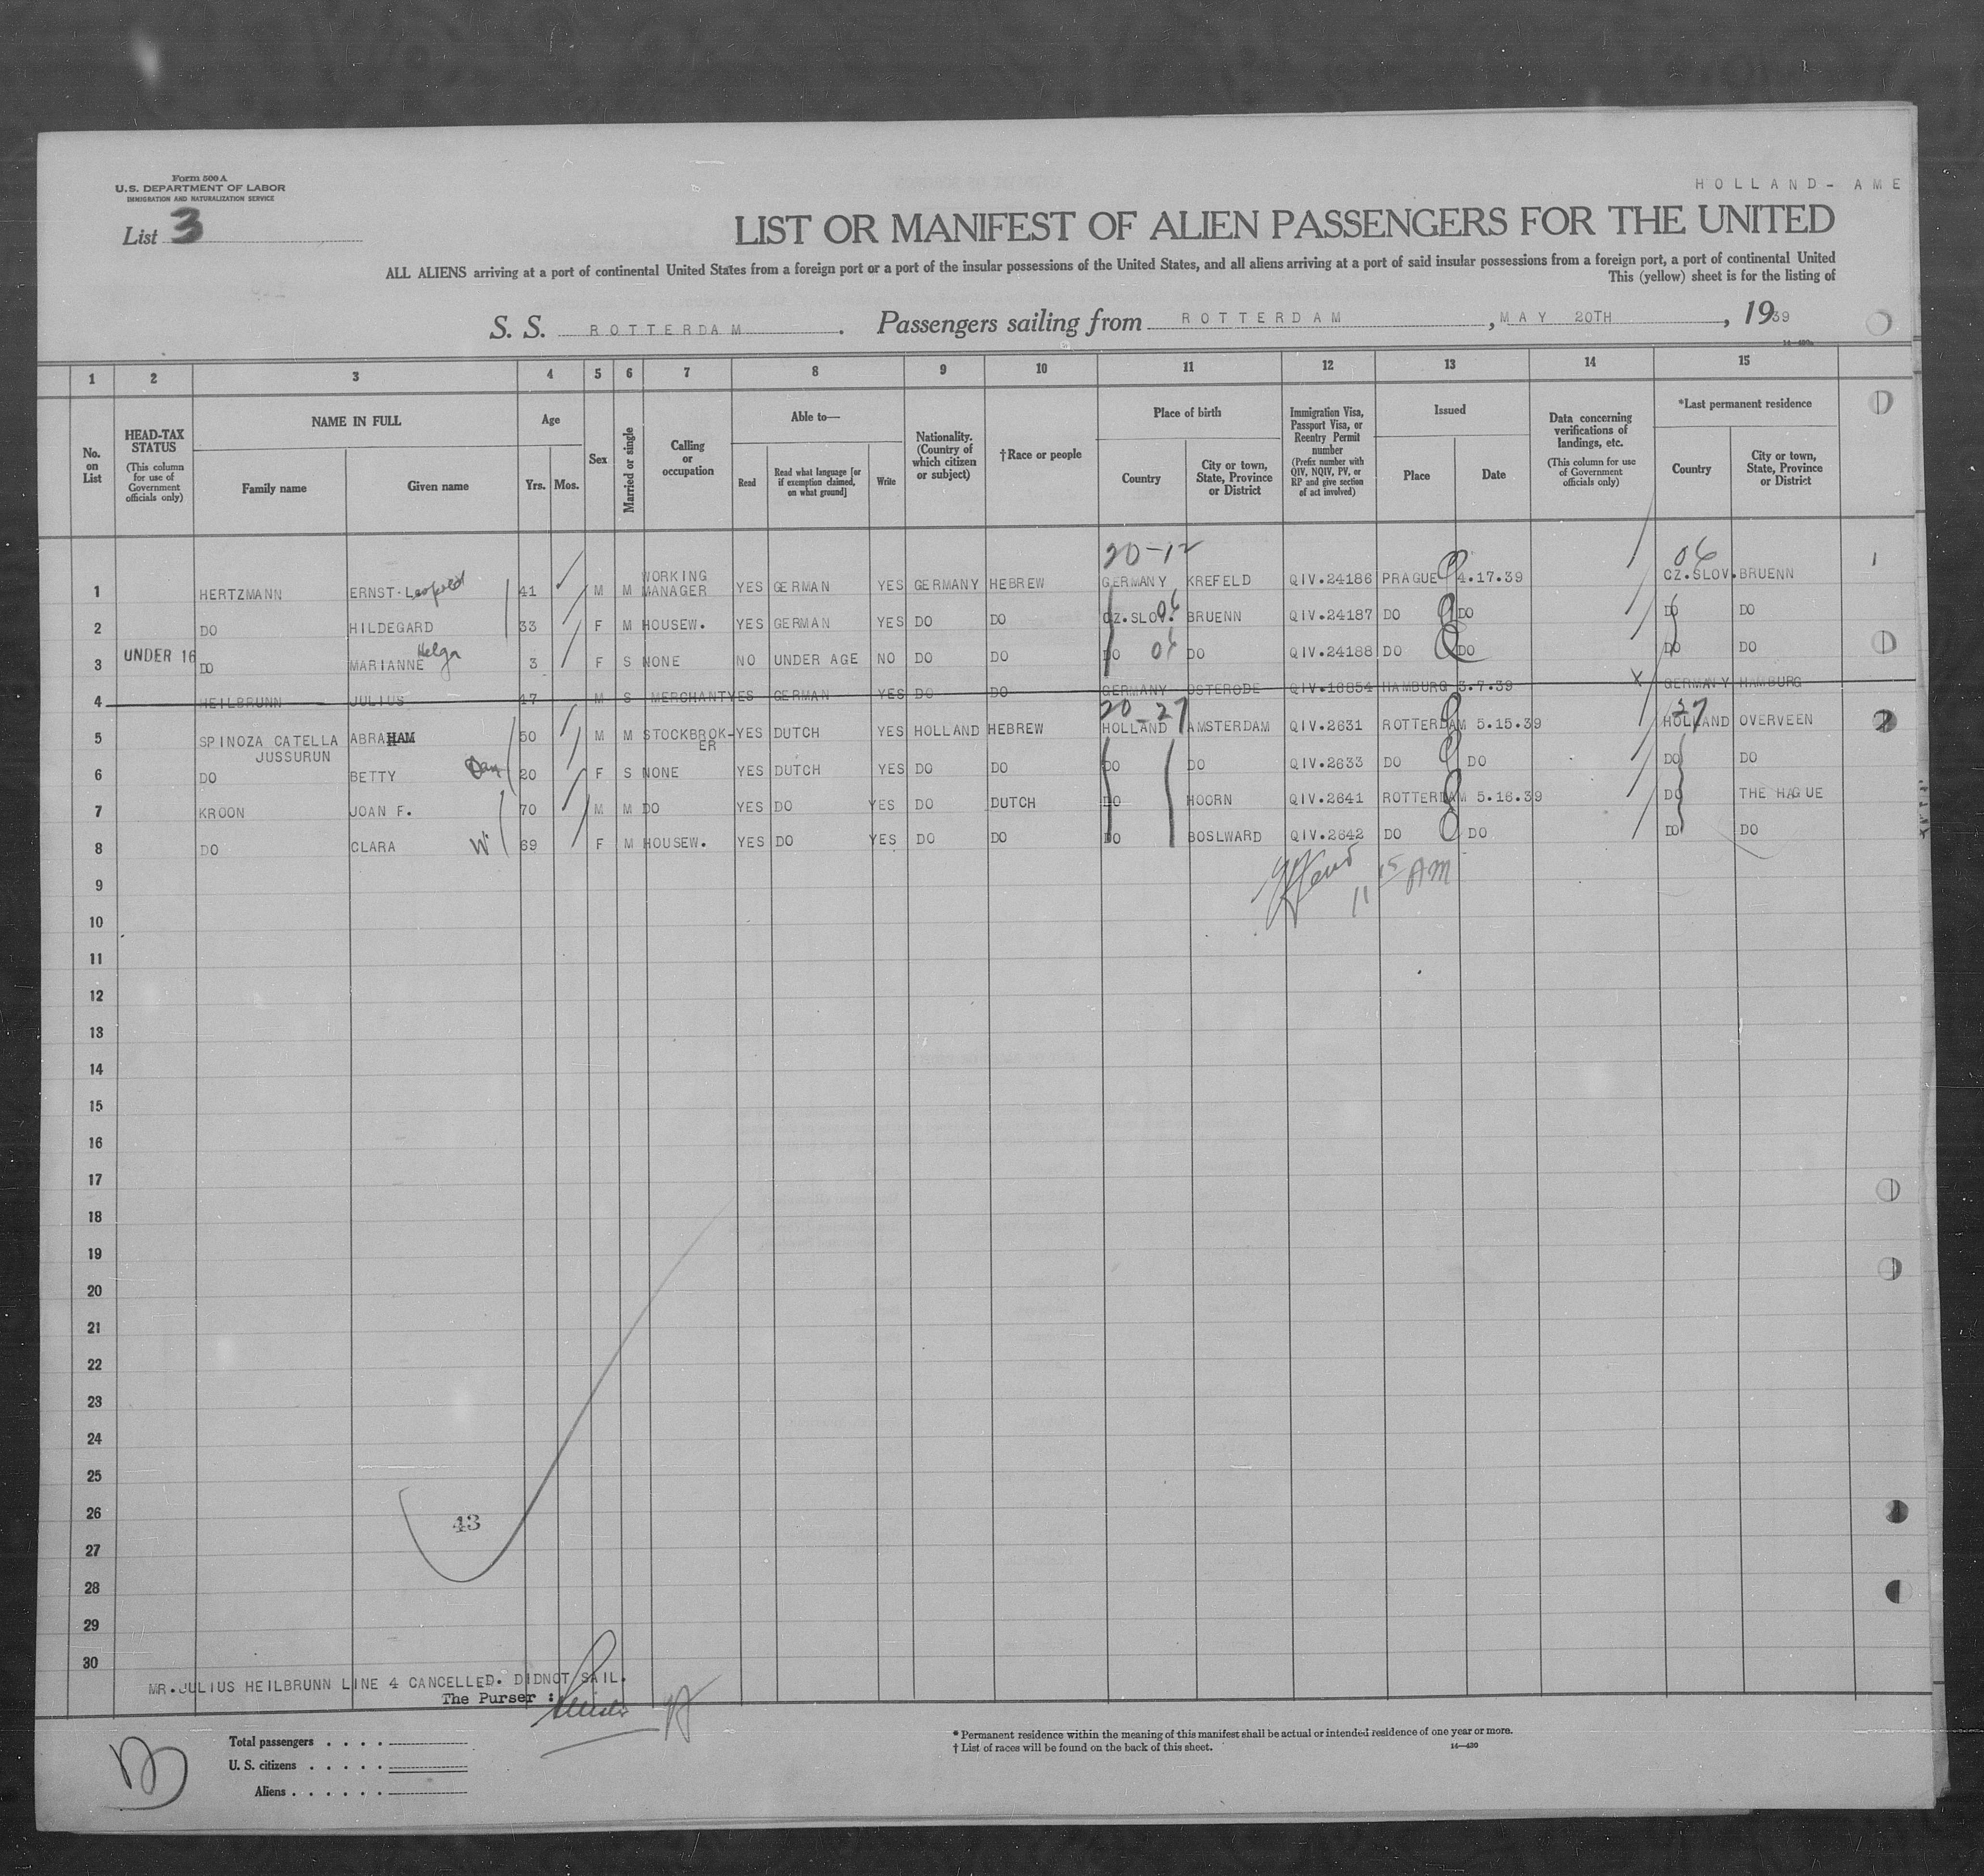 Form 500 A
U.S. DEPARTMENT OF LABOR
IMMIGRATION AND NATURALIZATION SERVICE
List 3
HOLLAND-AME
LIST OR MANIFEST OF ALIEN PASSENGERS FOR THE UNITED
ALL ALIENS arriving at a port of continental United States from a foreign port or a port of the insular possessions of the United States, and all aliens arriving at a port of said insular possessions from a foreign port, a port of continental United
This (yellow) sheet is for the listing of
S. S. ROTTERDAM. Passengers sailing from ROTTERDAM, MAY 20TH, 1939
1 2 3 4 5 6 7 8 9 10 11 12 13 14 15
No. on List
HEAD-TAX STATUS
(This column for use of Government officials only)
NAME IN FULL
Family name
Given name
Age
Yrs. Mos.
Sex
Married or single
Calling or occupation
Able to—
Read
Read what language [or if exemption claimed, on what ground]
Write
Nationality. (Country of which citizen or subject)
†Race or people
Place of birth
Country
City or town, State, Province or District
Immigration Visa, Passport Visa, or Reentry Permit number
(Prefix number with QIV, NQIV, PV, or RP and give section of act involved)
Issued
Place
Date
Data concerning verifications of landings, etc.
(This column for use of Government officials only)
*Last permanent residence
Country
City or town, State, Province or District
20-12 06
1 HERTZMANN ERNST-Leopold 41 M M WORKING MANAGER YES GERMAN YES GERMANY HEBREW GERMANY KREFELD QIV.24186 PRAGUE 4.17.39 CZ.SLOV. BRUENN 1
2 DO HILDEGARD 33 F M HOUSEW. YES GERMAN YES DO DO CZ.SLOV. 06 BRUENN QIV.24187 DO DO DO DO
3 UNDER 16 DO MARIANNE Helga 3 F S NONE NO UNDER AGE NO DO DO DO 06 DO QIV.24188 DO DO DO DO
4 HEILBRUNN JULIUS 47 M S MERCHANT YES GERMAN YES DO DO GERMANY OSTERODE QIV.18854 HAMBURG 3.7.39 X GERMANY HAMBURG
20-27 27
5 SPINOZA CATELLA JUSSURUN ABRAHAM 50 M M STOCKBROK-ER YES DUTCH YES HOLLAND HEBREW HOLLAND AMSTERDAM QIV.2631 ROTTERDAM 5.15.39 HOLLAND OVERVEEN 2
6 DO BETTY Dau 20 F S NONE YES DUTCH YES DO DO DO DO QIV.2633 DO DO DO DO
7 KROON JOAN F. 70 M M DO YES DO YES DO DUTCH DO HOORN QIV.2641 ROTTERDAM 5.16.39 DO THE HAGUE
8 DO CLARA Wi 69 F M HOUSEW. YES DO YES DO DO DO BOSLWARD QIV.2642 DO DO DO DO
11 15 AM
9
10
11
12
13
14
15
16
17
18
19
20
21
22
23
24
25
26
43
27
28
29
30
MR.JULIUS HEILBRUNN LINE 4 CANCELLED. DIDNOT SAIL.
The Purser :
Total passengers . . . .
U. S. citizens . . . . .
Aliens . . . . . .
* Permanent residence within the meaning of this manifest shall be actual or intended residence of one year or more.
† List of races will be found on the back of this sheet.
14—430